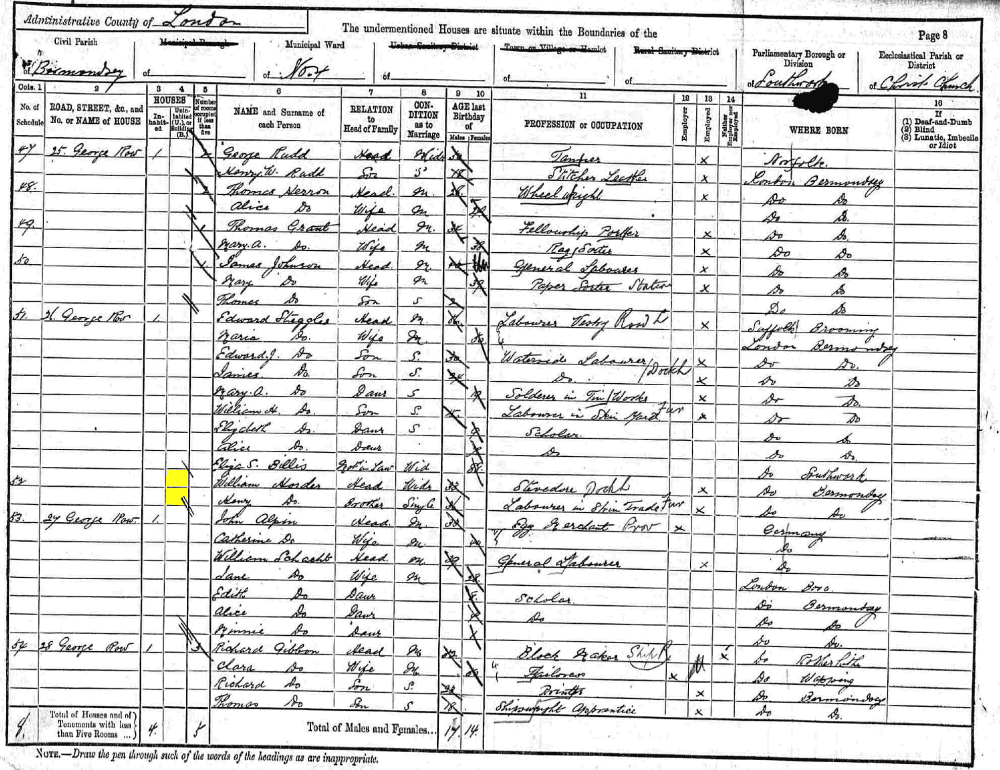 Administrative County of London
The undermentioned Houses are situate within the Boundaries of the
Page 8
Civil Parish
Municipal Borough
Municipal Ward
Urban Sanitary District
Town or Village or Hamlet
Rural Sanitary District
Parliamentary Borough or Division
Ecclesiastical Parish or District
of Bermondsey
of
of No. 4
of
of
of
of Southwark
of Christ Church
Cols. 1 2 3 4 5 6 7 8 9 10 11 12 13 14 15 16
No. of Schedule
ROAD, STREET, &c., and No. or NAME of HOUSE
HOUSES
Inhabited
Uninhabited (U.) or Building (B.)
Number of rooms occupied if less than five
NAME and Surname of each Person
RELATION to Head of Family
CONDITION as to Marriage
AGE last Birthday of
Males
Females
PROFESSION or OCCUPATION
Employer
Employed
Neither
WHERE BORN
If
(1) Deaf-and-Dumb
(2) Blind
(3) Lunatic, Imbecile or Idiot
47 25 George Row 1 George Rudd Head Widr Tanner x Norfolk
Henry W. Rudd Son S 18 Stitcher Leather x London Bermondsey
48 Thomas Herron Head M Wheelwright x Do Do
Alice Do Wife M Do Do
49 Thomas Grant Head M Fellowship Porter x Do Do
Mary A. Do Wife M Rag Sorter x Do Do
50 James Johnson Head M General Labourer x Do Do
Mary Do Wife M Paper Sorter x Do Do
Thomas Do Son S Do Do
51 26 George Row 1 Edward Steggles Head M Labourer Vestry x Suffolk
Maria Do Wife M London Bermondsey
Edward J. Do Son S Waterside Labourer x Do Do
James Do Son S Do x Do Do
Mary A. Do Daur S 19 Solderer in Tin Works x Do Do
William H. Do Son S Labourer in Skin Yard Fur x Do Do
Elizabeth Do Daur S Scholar Do Do
Alice Do Daur Do Do Do
Eliza S. Billis in Law Wid Do Southwark
52 William Horder Head Widr Stevedore Dock x Do Bermondsey
Henry Do Brother Single Labourer in Skin Trade Fur x Do Do
53 27 George Row 1 John Alpin Head M Egg Merchant Prov x Germany
Catherine Do Wife M Do
William Schacht Head M General Labourer x Do
Jane Do Wife M 28 London Boro
Edith Do Daur Scholar Do Bermondsey
Alice Do Daur Do Do Do
Minnie Do Daur Do Do
54 28 George Row 1 3 Richard Gibbon Head M Block Maker x Do Rotherhithe
Clara Do Wife M Tailoress x Do Wapping
Richard Do Son S Printer x Do Bermondsey
Thomas Do Son S 18 Shipwright Apprentice x Do Do
Total of Houses and of Tenements with less than Five Rooms ... 4 5
Total of Males and Females... 17 14
NOTE.—Draw the pen through such of the words of the headings as are inappropriate.